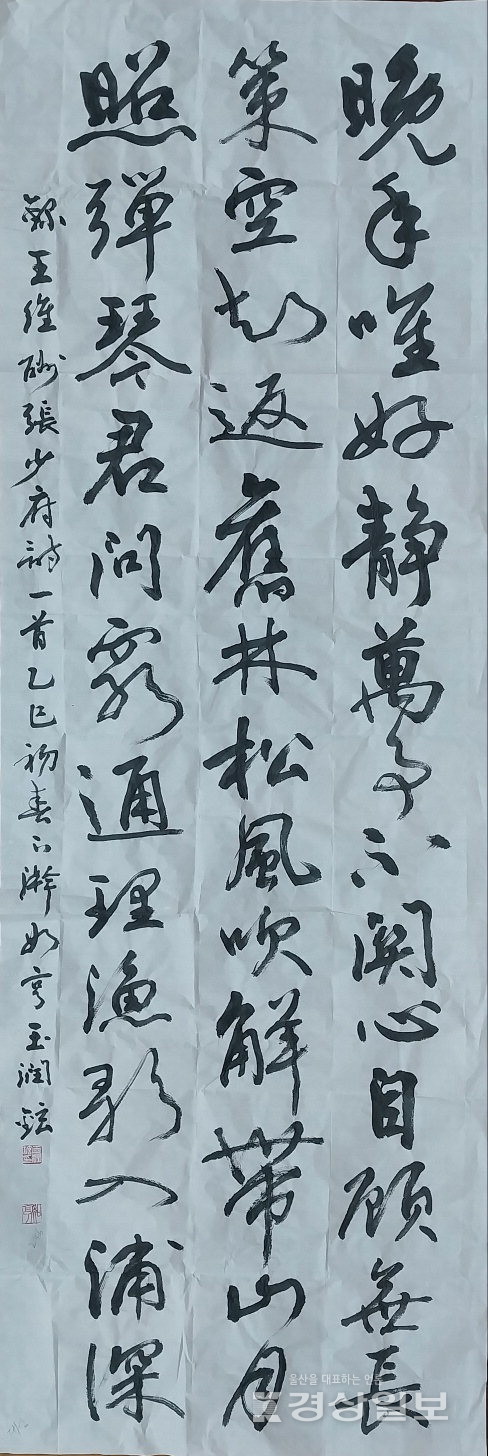 晚年唯好靜萬事不關心自顧無長
策空知返舊林松風吹解帶山月
照彈琴君問窮通理漁歌入浦深
錄王維酬張少府詩一首乙巳初春下澣如亨玉潤鉉
울산을 대표하는 언론
경상일보